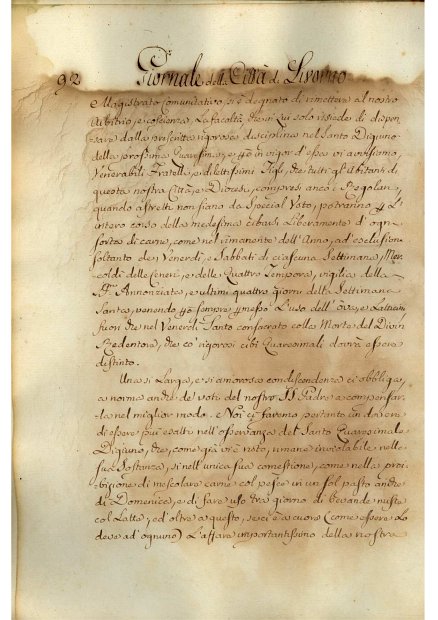 92
Giornale della Città di Livorno
Magistrato Comunitativo si è degnato di rimettere al nostro
Arbitrio, e coscienza la facoltà, che in Lui solo risiede di dispen
sare dalla prescritta rigorosa disciplina nel Santo Digiuno
della prossima Quaresima, e in vigor d'essa vi avvisiamo,
Venerabili Fratelli, e dilettissimi Figli, che tutti gl'Abitanti di
questa nostra Città, e Diocesi, compresi anco i Regolari,
quando astretti non siano da special Voto, potranno per l'
intero corso della medesima cibarsi liberamente d'ogni
sorta di carne, come nel rimanente dell'Anno, ad esclusione
soltanto de' Venerdì, e Sabbati di ciascuna Settimana, Mer
coldì delle Ceneri, e delle Quattro Tempora, vigilia della
SS. Annunziata, e ultimi quattro giorni della Settimana
Santa, venendo però sempre permesso l'uso dell'Ova, e Latticini
fuori che nel Venerdì Santo consacrato colla Morte del Divin
Redentore, che co' rigorosi cibi Quaresimali dovrà essere
distinto.
Una sì larga, e sì amorosa condiscendenza ci obbliga,
a norma anche de' voti del nostro SS. Padre a compensar
la nel miglior modo. E Noi ci faremo pertanto un dovere
di essere più esatti nell'osservanza del Santo Quaresimale
Digiuno, che, come già si è visto, rimane inviolabile nella
sua sostanza, sì nell'unica sua comestione, come nella proi
bizione di mescolare carne col pesce in un sol pasto anche
di Domenica, e di fare uso tra giorno di bevande miste
col Latte; ed oltre a questo, se ci è a cuore (come essere lo
deve ad ognuno) l'affare importantissimo della nostra